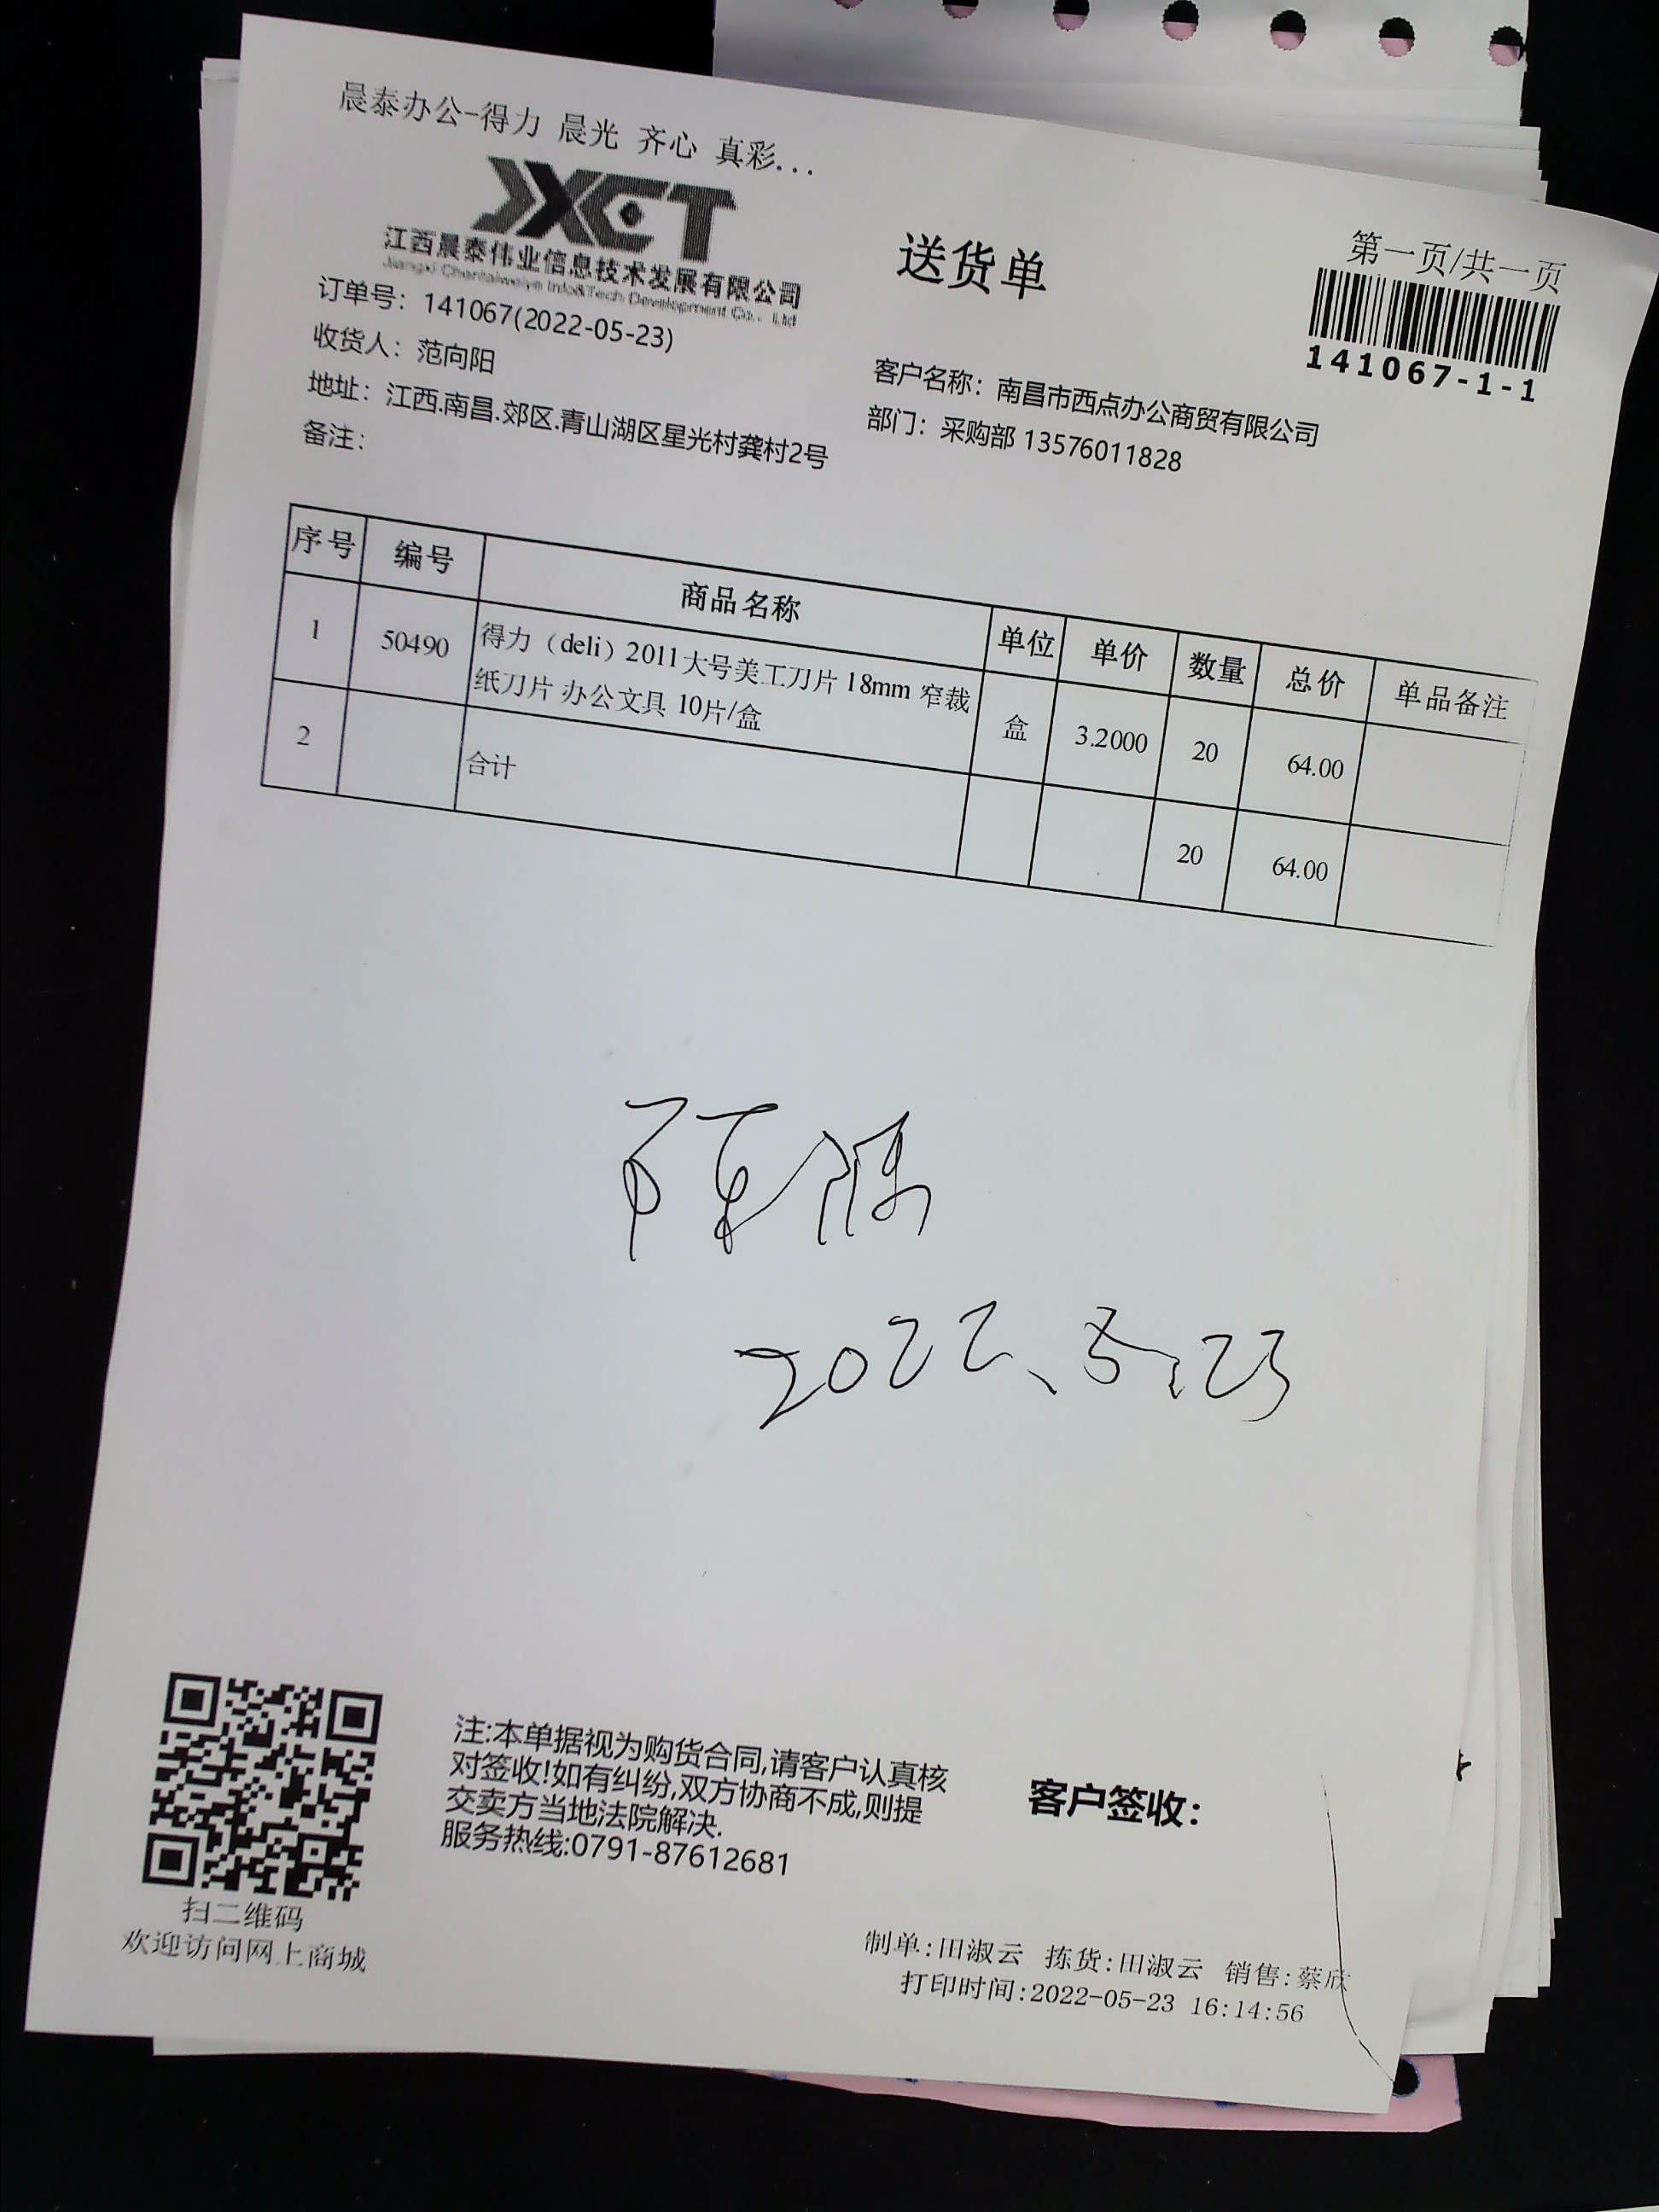 晨泰办公-得力 晨光 齐心 真彩...
JXCT
江西晨泰伟业信息技术发展有限公司
Jiangxi Chentaiweiye Info&Tech Development Co., Ltd
送货单
第一页/共一页
141067-1-1
订单号：141067(2022-05-23)
收货人：范向阳
客户名称：南昌市西点办公商贸有限公司
地址：江西.南昌.郊区.青山湖区星光村龚村2号
部门：采购部 13576011828
备注：
序号 编号 商品名称 单位 单价 数量 总价 单品备注
1 50490 得力（deli）2011大号美工刀片 18mm 窄裁 盒 3.2000 20 64.00
纸刀片 办公文具 10片/盒
2 合计 20 64.00
2022、5.23
注:本单据视为购货合同,请客户认真核
对签收!如有纠纷,双方协商不成,则提
交卖方当地法院解决.
服务热线:0791-87612681
客户签收：
扫二维码
欢迎访问网上商城
制单:田淑云 拣货:田淑云 销售:蔡欣
打印时间:2022-05-23 16:14:56